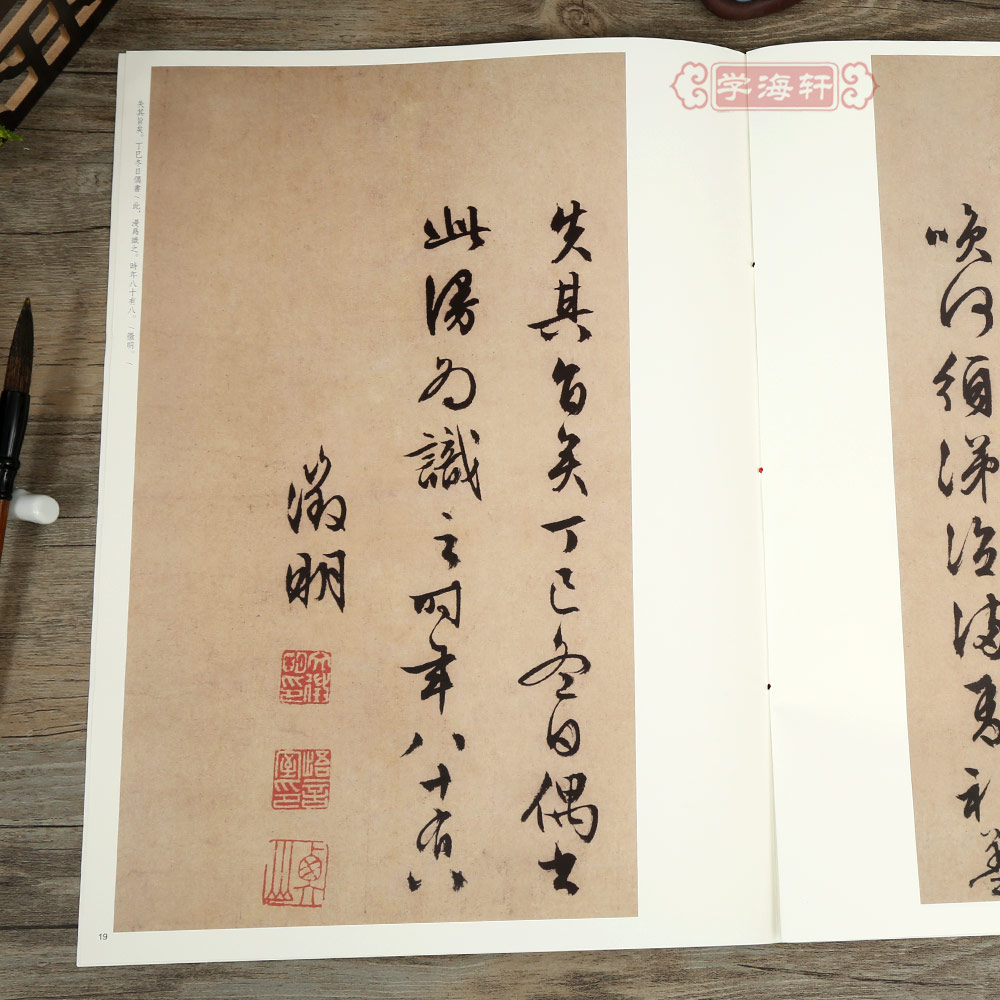 学海轩
喚何須涕
失其旨矣丁巳冬日偶書
此漫為識之时年八十有八
徵明
文徵明印
悟言室印
失其旨矣。丁巳冬日偶書（此，漫爲識之。時年八十有八。（徵明。）
19